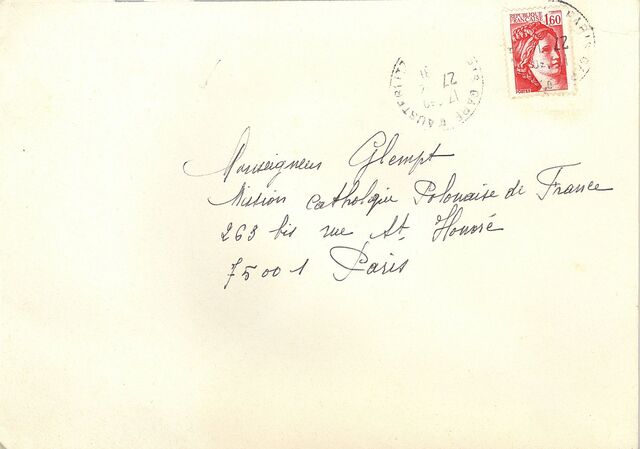 REPUBLIQUE FRANCAISE 1,60
PARIS
GARE D'AUSTERLITZ
27
17
Monseigneur Glempt
Mission catholique Polonaise de France
263 bis rue St Honoré
75001 Paris